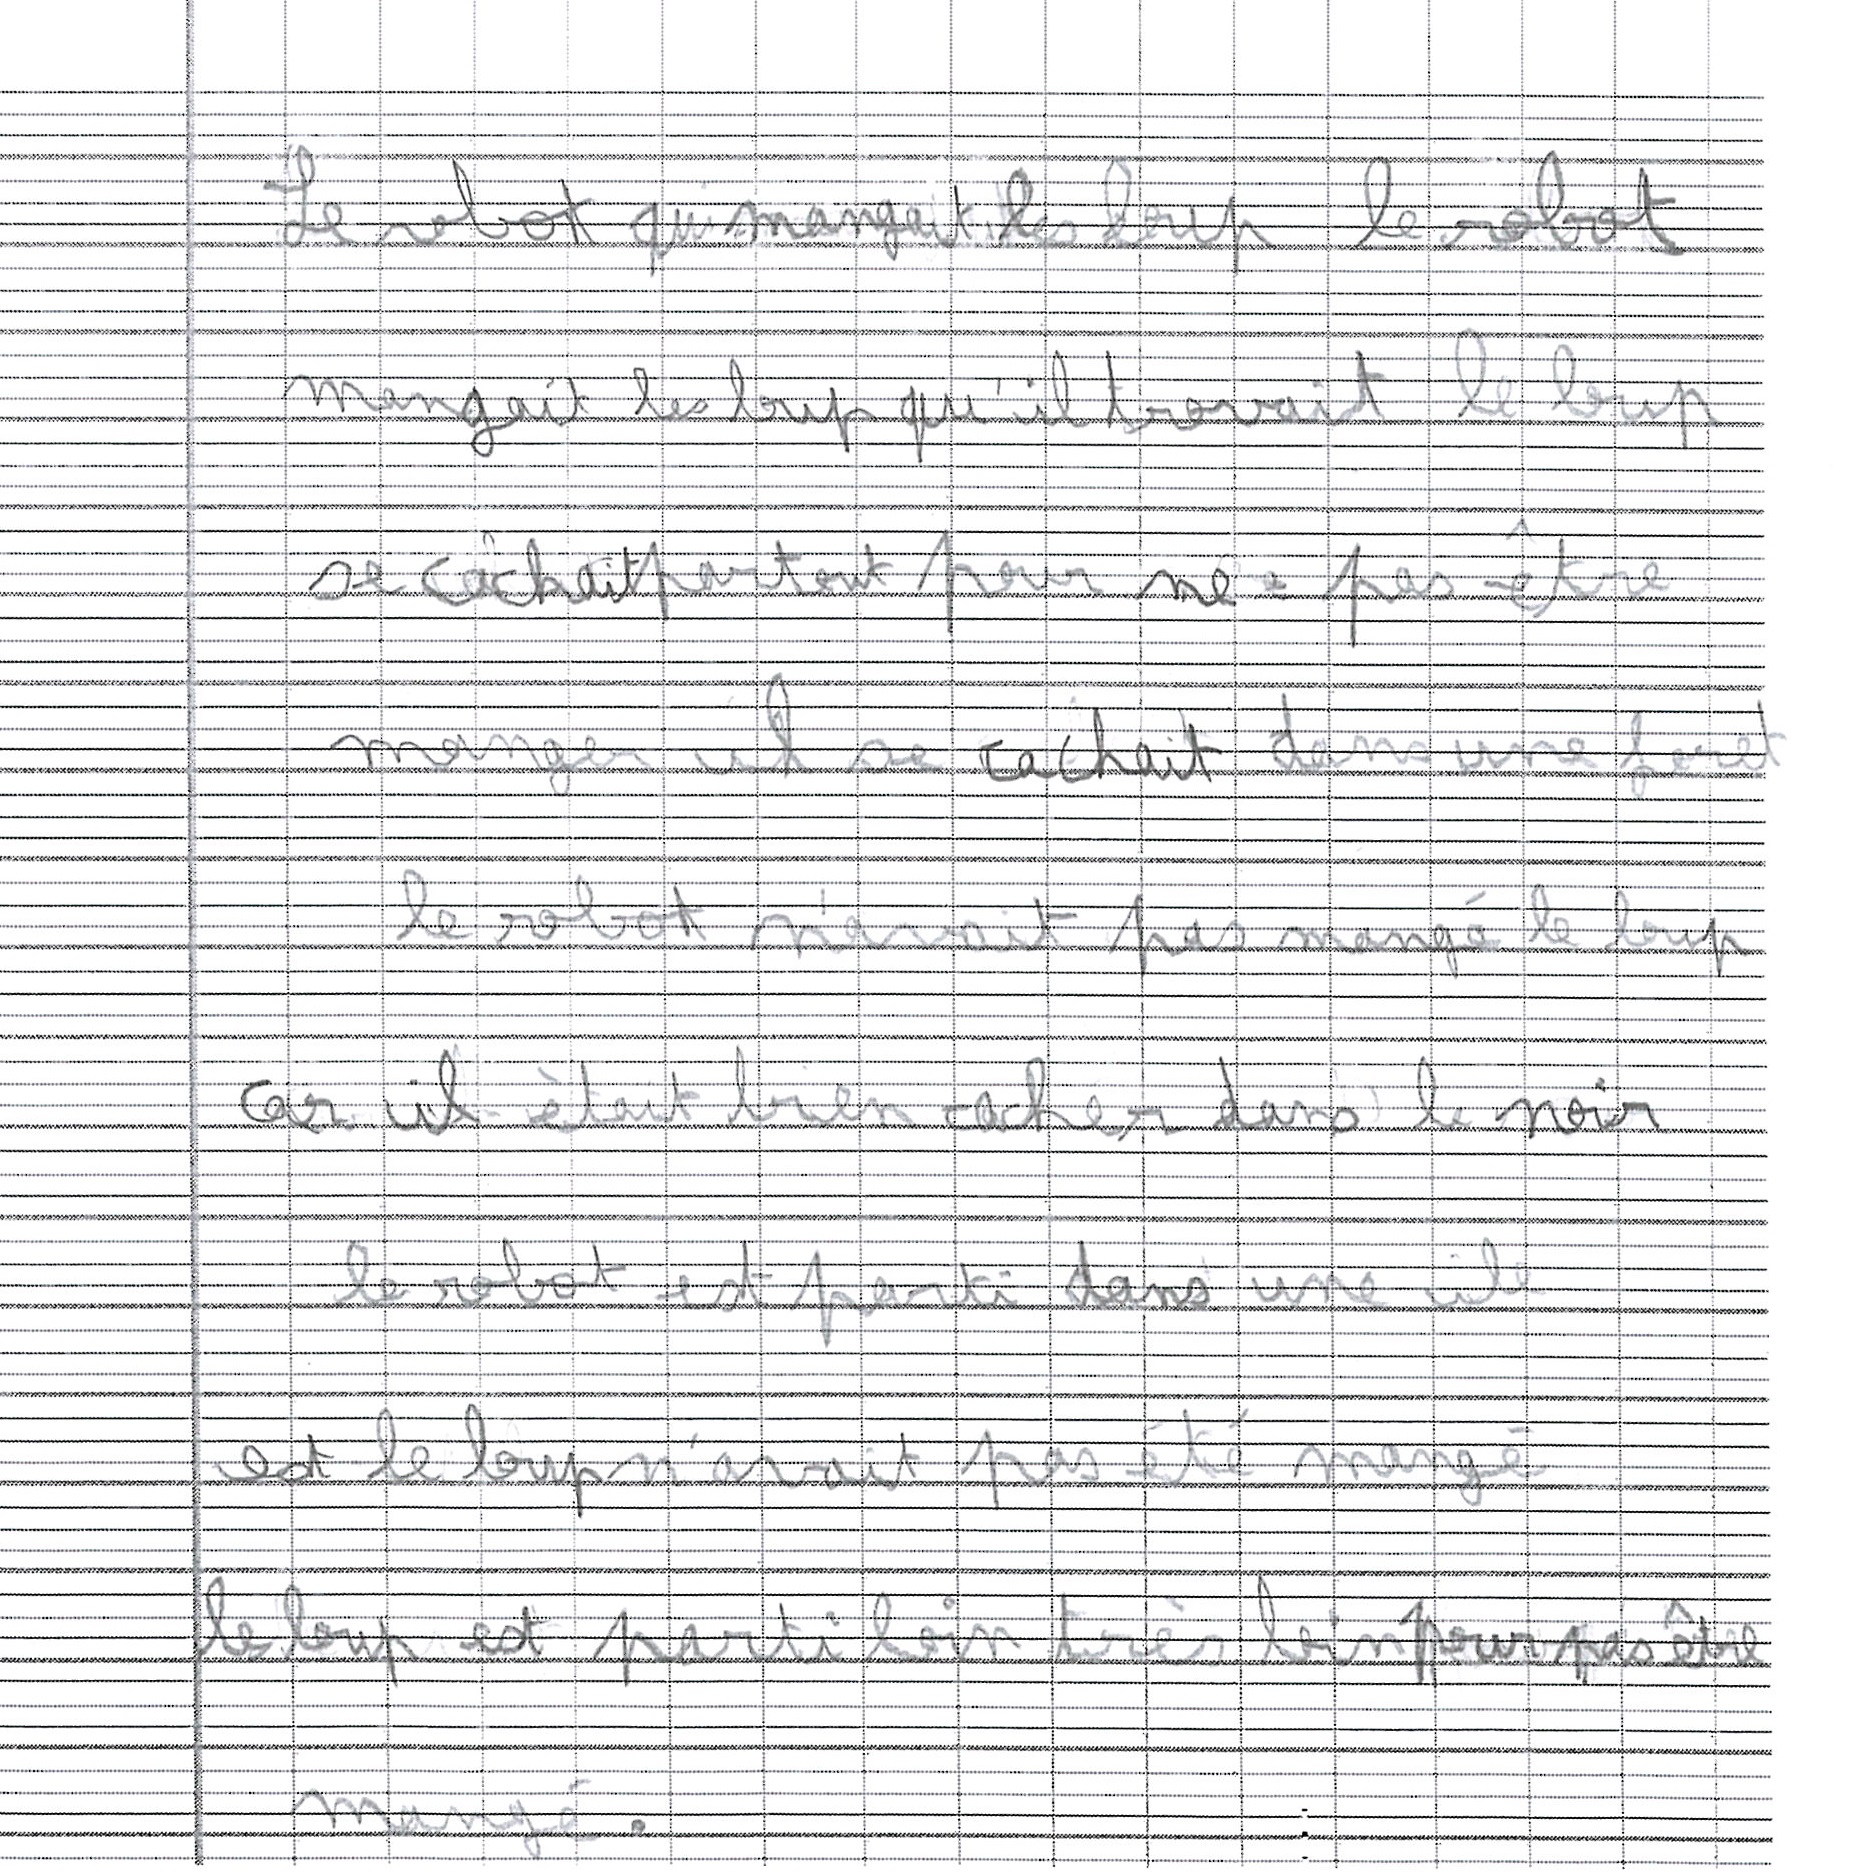 Le robot qui mangait les loup le robot
mangait les loup qu'il trouvait le loup
se cachait partout pour ne pas être
manger il se cachait dans une foret
le robot n'avait pas mangé le loup
car il était bien cacher dans le noir
le robot est parti dans une ile
est le loup n'avait pas été mangé
le loup est parti loin très loin pour pas être
mangé.